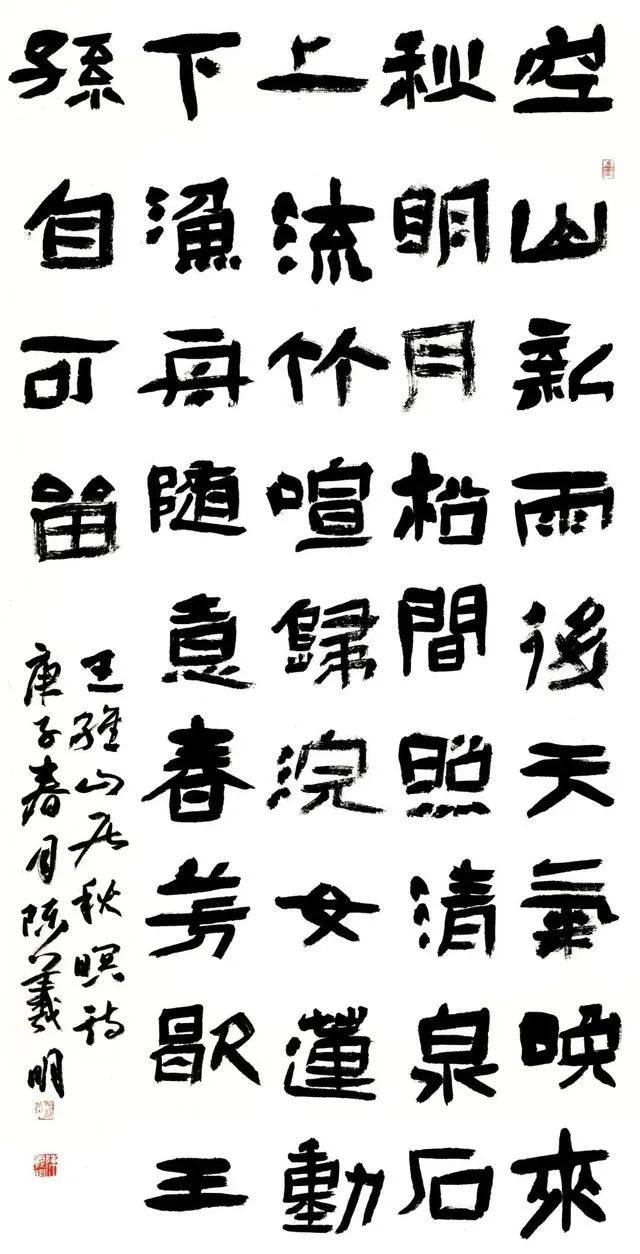 空山新雨後天氣晚來
秋明月松間照清泉石
上流竹喧歸浣女蓮動
下漁舟随意春芳歇王
孫自可留
王維山居秋暝詩
庚子春月陳羲明